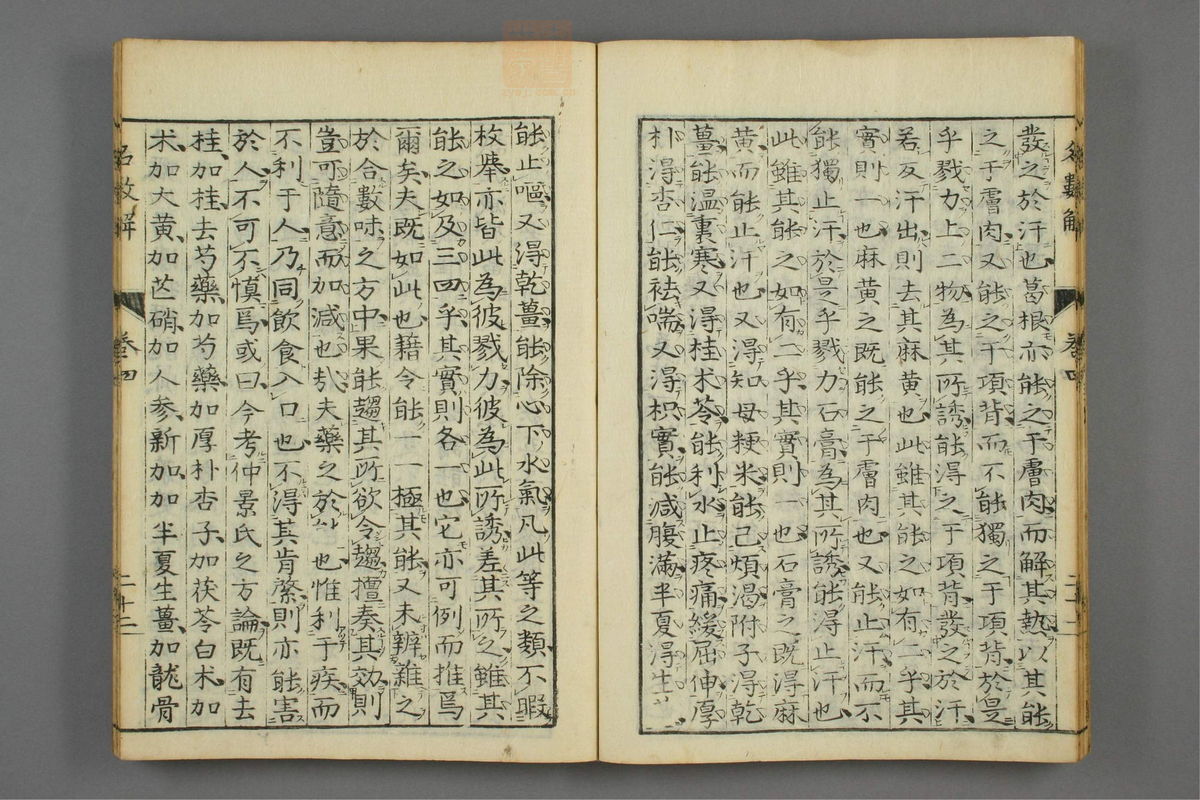 發之於汗也葛根亦能之于膚肉而解其熱以其能
之于膚肉又能之于項背而不能獨之于項背於是
乎戮力上二物為其所誘能得之于項背發之於汗
若反汗出則去其麻黄也此雖其能之如有二乎其
實則一也麻黄之既能之于膚肉也又能止汗而不
能獨止汗於是乎戮力石膏為其所誘能得止汗也
此雖其能之如有二乎其實則一也石膏之既得麻
黄而能止汗也又得知母粳米能己煩渴附子得乾
薑能温裏寒又得桂术苓能利水止疼痛緩屈伸厚
朴得杏仁能袪喘又得枳實能减腹滿半夏得生
能止嘔又得乾薑能除心下水氣凡此等之類不暇
枚舉亦皆此為彼戮力彼為此所誘差其所之雖其
能之如及三四乎其實則各一也它亦可例而推焉
爾矣夫既如此也藉令能一一極其能又未辨雜之
於合數味之方中果能趨其所欲令趨擅奏其効則
豈可隨意而加减也㢤夫藥之於也惟利于疾而
不利于人乃同飲食入口也不得其肯綮則亦能害
於人不可不慎焉或曰今考仲景氏之方論既有去
桂加桂去芍藥加芍藥加厚朴杏子加茯苓白术加
术加大黄加芒硝加人參新加加半夏生薑加龍骨
名數解
卷四
二十二
名數解
卷四